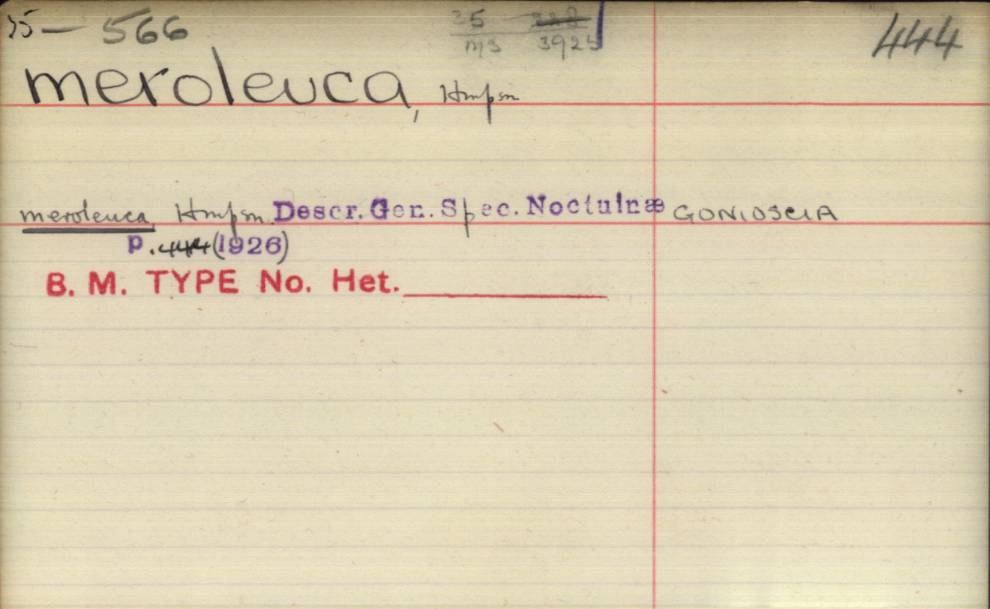 35 — 566
35 3925
ms
444
meroleuca, Hmpsn
meroleuca Hmpsn. Descr. Gen. Spec. Noctuinæ GONIOSCIA
p. 444 (1926)
B. M. TYPE No. Het.